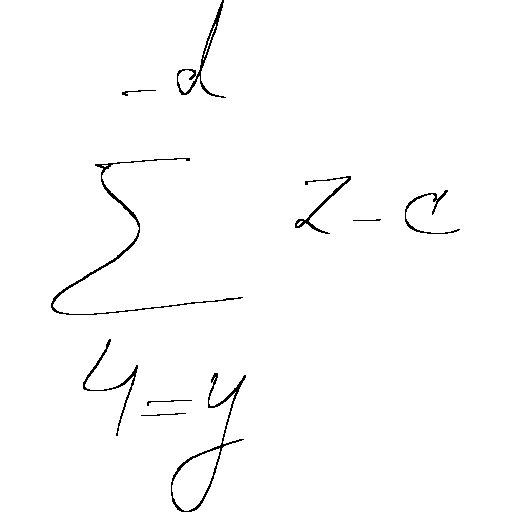 \sum_{4=y}^{-d} z - c